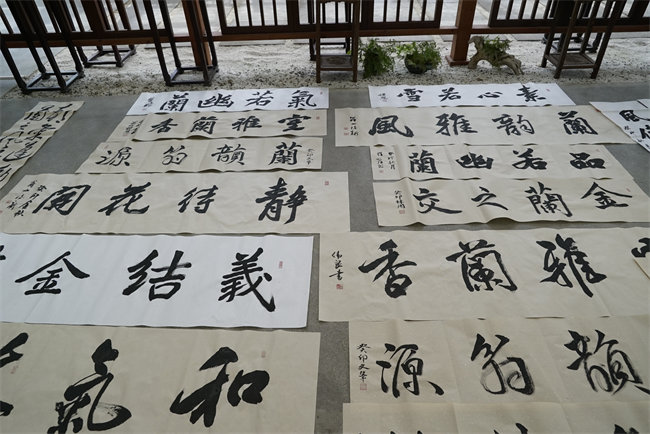 氣若幽蘭
室雅蘭香
蘭韻翁源
靜待花開
義結金
和氣
素心若雪
蘭韻雅風
品若幽蘭
金蘭之交
雅蘭香
韻翁源
癸卯